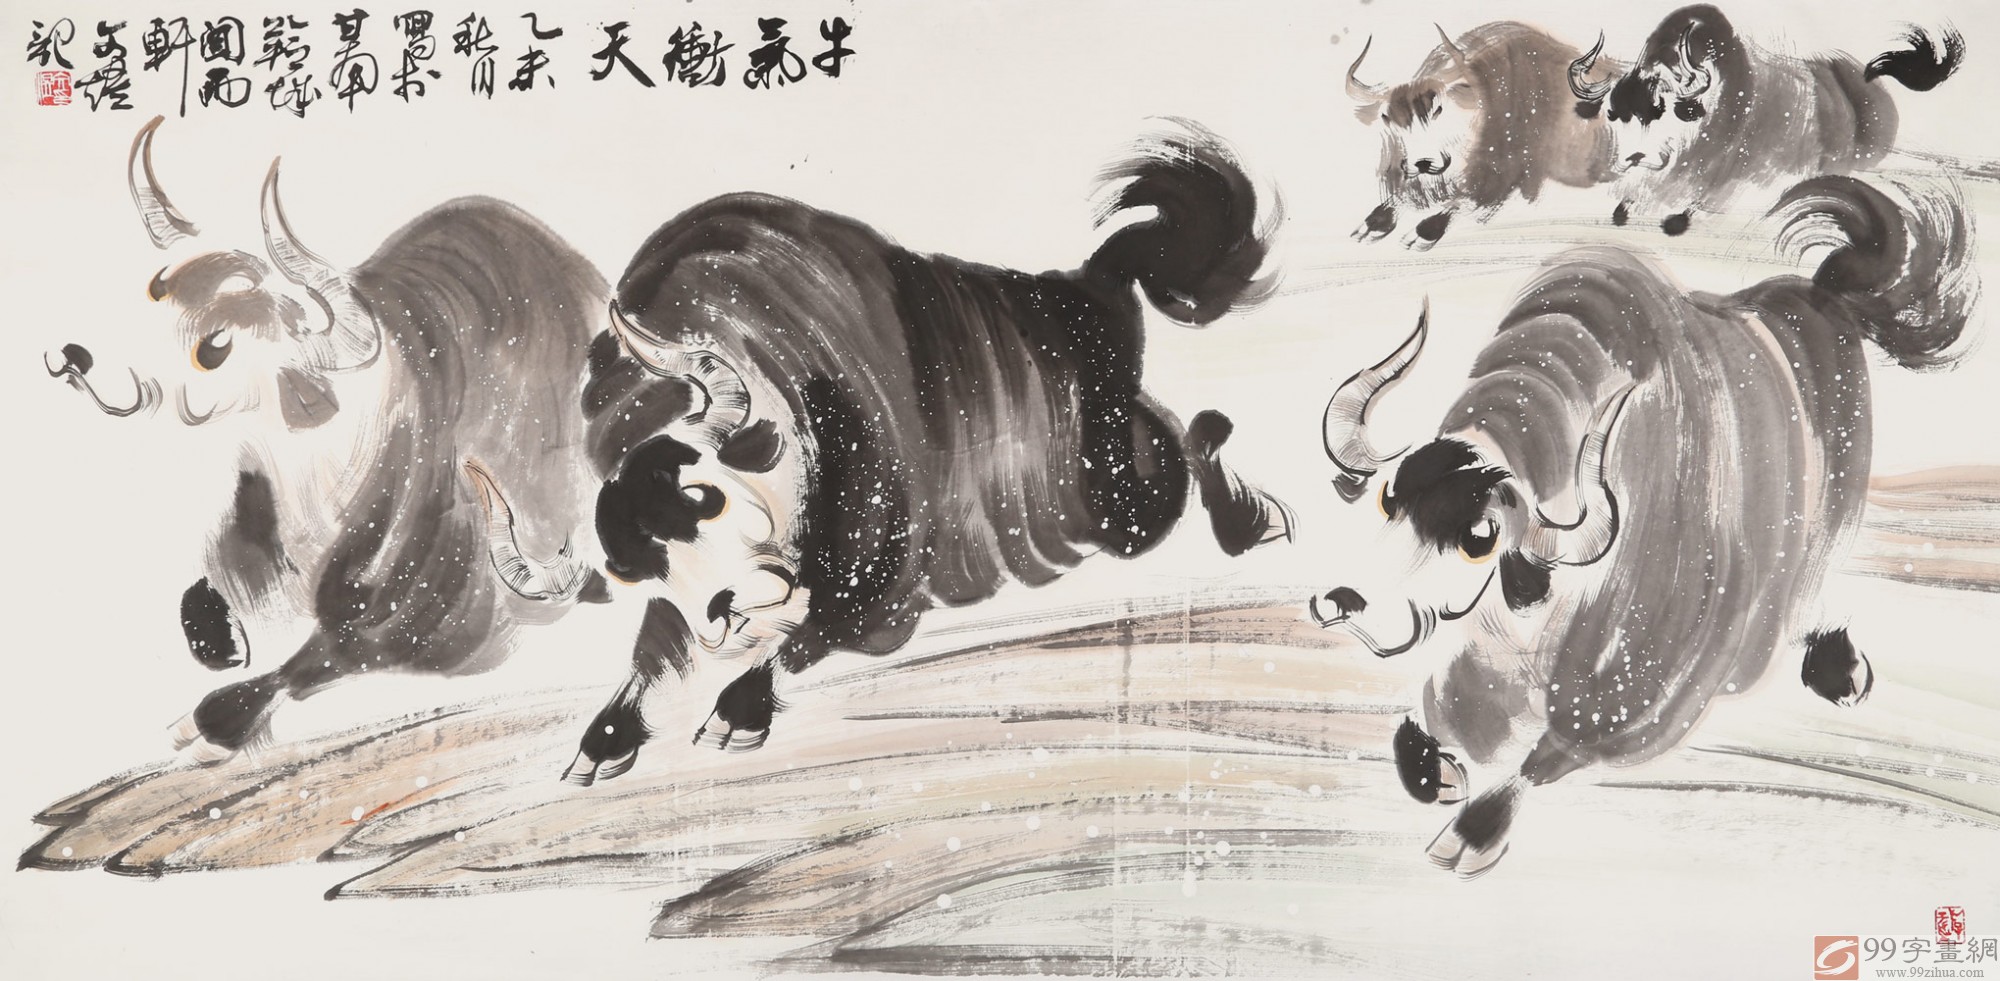 牛氣衝天
乙未
秋月
寫於
甘南
草城
聞雨
軒
文
記
99字畫網
www.99zihua.com